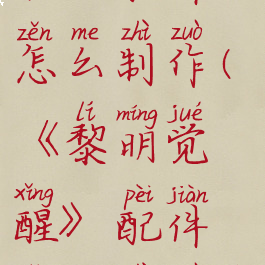 zěn me zhì zuò
怎么制作(
lí míng jué
《黎明觉
xǐng pèi jiàn
醒》配件